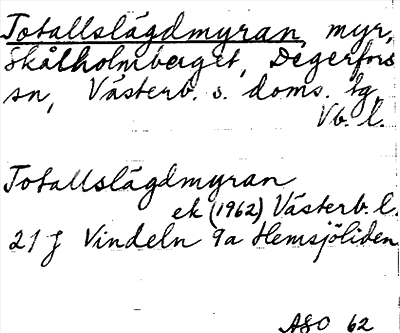 Totallslägdmyran, myr,
Skålholmberget, Degerfors
sn, Västerb. s. doms. tg,
Vb. l.
Totallslägdmyran
ek (1962) Västerb. l.
21 J Vindeln 9a Hemsjöliden
ASO 62